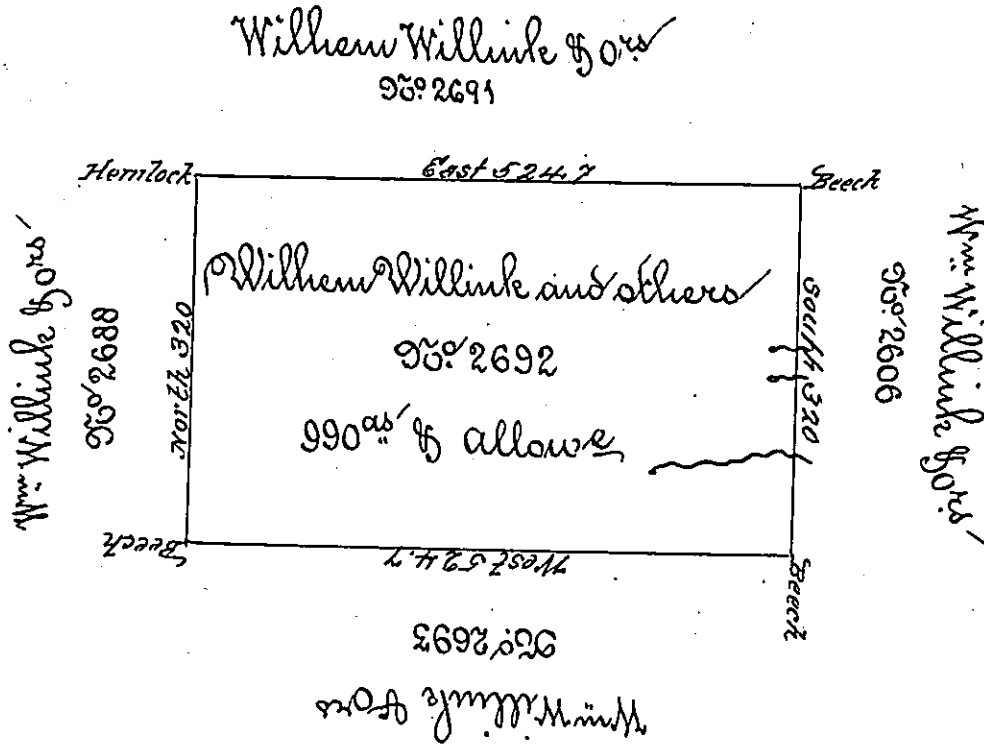 Wilhem Willink & ors
No. 2691
Hemlock
East 524.7
Beech
Wm. Willink & ors
No. 2688
North 320
Wilhem Willink and others
No. 2692
990 as & allowe
South 320
No. 2606
Wm. Willink & ors
Beech
West 524.7
Beech
No. 2693
Wm. Willink & ors